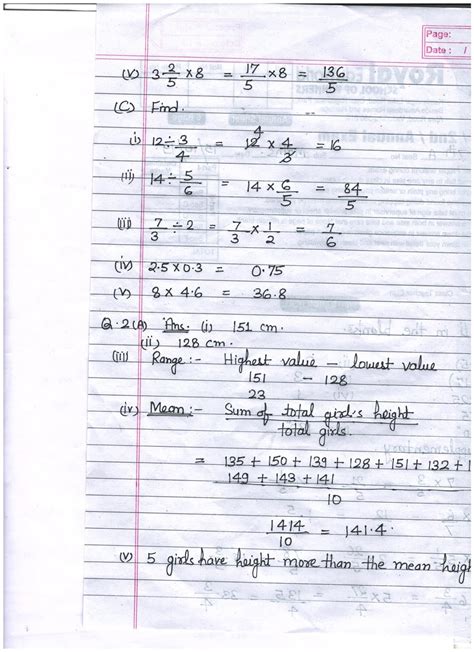 Page:
Date: /
(v) 3 2/5 × 8 = 17/5 × 8 = 136/5
(C) Find.
(i) 12 ÷ 3/4 = 4 12 × 4/3 = 16
(ii) 14 ÷ 5/6 = 14 × 6/5 = 84/5
(iii) 7/3 ÷ 2 = 7/3 × 1/2 = 7/6
(iv) 2.5 × 0.3 = 0.75
(v) 8 × 4.6 = 36.8
Q.2(A) Ans. (i) 151 cm.
(ii) 128 cm.
(iii) Range :- Highest value – lowest value
151 – 128
23
(iv) Mean :- Sum of total girl's height / total girls.
= 135 + 150 + 139 + 128 + 151 + 132 + 1
149 + 143 + 141 / 10
1414/10 = 141.4.
(v) 5 girls have height more than the mean heigh